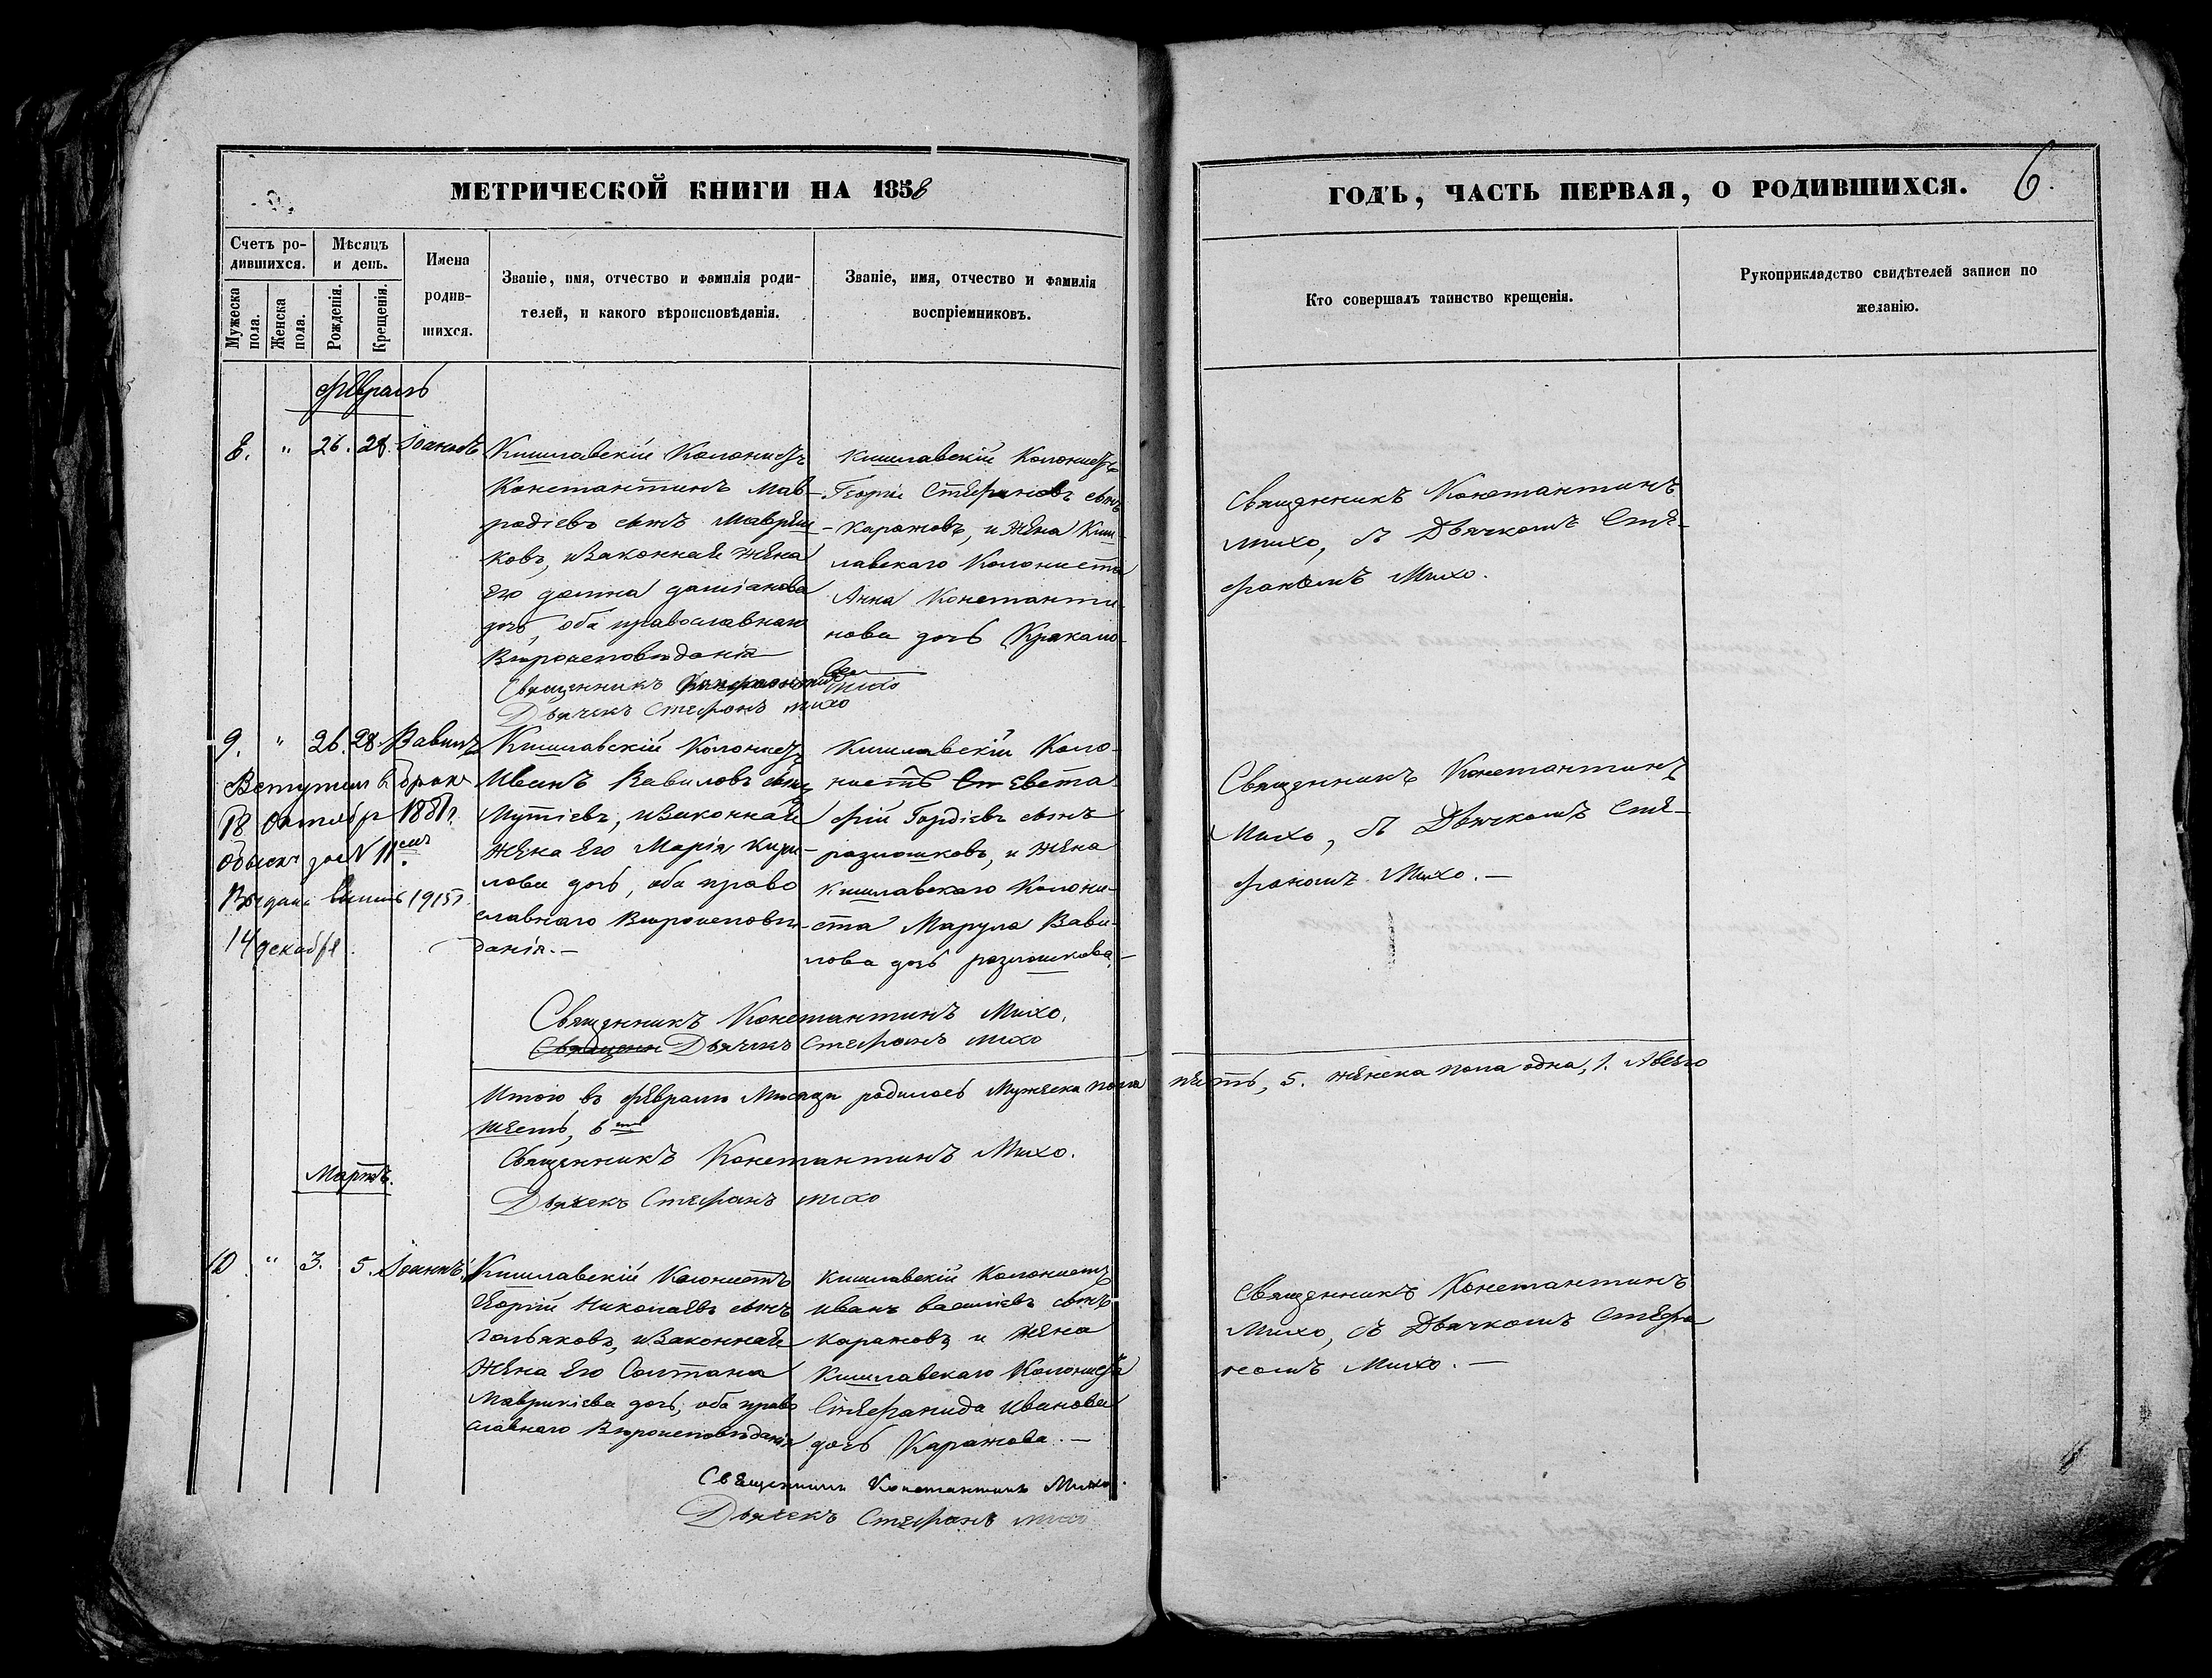 МЕТРИЧЕСКОЙ КНИГИ НА 1858
ГОДЪ, ЧАСТЬ ПЕРВАЯ, О РОДИВШИХСЯ.
6.
Счетъ ро-
дившихся.
Мужеска
пола.
Женска
пола.
Мѣсяцъ
и день.
Рожденія.
Крещенія.
Имена
родив-
шихся.
Званіе, имя, отчество и фамилія роди-
телей, и какого вѣроисповѣданія.
Званіе, имя, отчество и фамилія
воспріемниковъ.
Кто совершалъ таинство крещенія.
Рукоприкладство свидѣтелей записи по
желанію.
Февраль
8. " 26. 28. Іоаннъ
Кишлавскій Колонистъ
Константинъ Мав-
родіевъ сынъ
ковъ, изаконная жена
Его домна даміанова
дочь, оба православнаго
Вѣроисповѣданія
Кишлавскій Колонистъ
Георгіи Стефановъ сынъ
Каражовъ, и жена Киш-
лавскаго Колониста
Анна Константи-
нова дочь
ва
Священникъ Константинъ
Михо, съ Дьячкомъ Сте-
фаномъ Михо.
Священникъ Константинъ Михо
Дьячекъ Стефанъ михо
9. " 26. 28. Вавилъ
Вступил в брак
18 Октября
обыск за N 11
14 декабря
Кишлавскій Колонистъ
Иванъ Вавиловъ сынъ
Мутіевъ, изаконная
жена Его Марія Кири-
лова дочь, оба право
славнаго Вѣроисповѣ-
данія.—
Кишлавскій Коло-
нистъ Евста-
фій Гордіевъ сынъ
разлошковъ, и жена
Кишлавскаго Колони-
ста Марула Вави-
лова дочь разлошкова.—
Священникъ Константинъ
Михо, съ Дьячкомъ Сте-
фаномъ Михо.—
Священникъ Константинъ Михо.
Дьячекъ Стефанъ михо
Итого въ февралѣ Мѣсяцѣ родилось Мужеска пола пять, 5. женска пола одна, 1. Авсего
шесть, 6
Священникъ Константинъ Михо.
Дьячекъ Стефанъ михо
Мартъ.
10 " 3. 5. Іоаннъ.
Кишлавскій Колонистъ
Георгій Николаевъ сынъ
изаконная
жена Его Солтана
Маврикіева дочь, оба право
славнаго Вѣроисповѣданія
Кишлавскій Колонистъ
Иванъ Василіевъ сынъ
Каражовъ и жена
Кишлавскаго Колониста
Стефанида Иванова
дочь Каражова.—
Священникъ Константинъ
Михо, съ Дьячкомъ Стефа
номъ Михо.—
Священникъ Константинъ Михо.
Дьячекъ Стефанъ михо